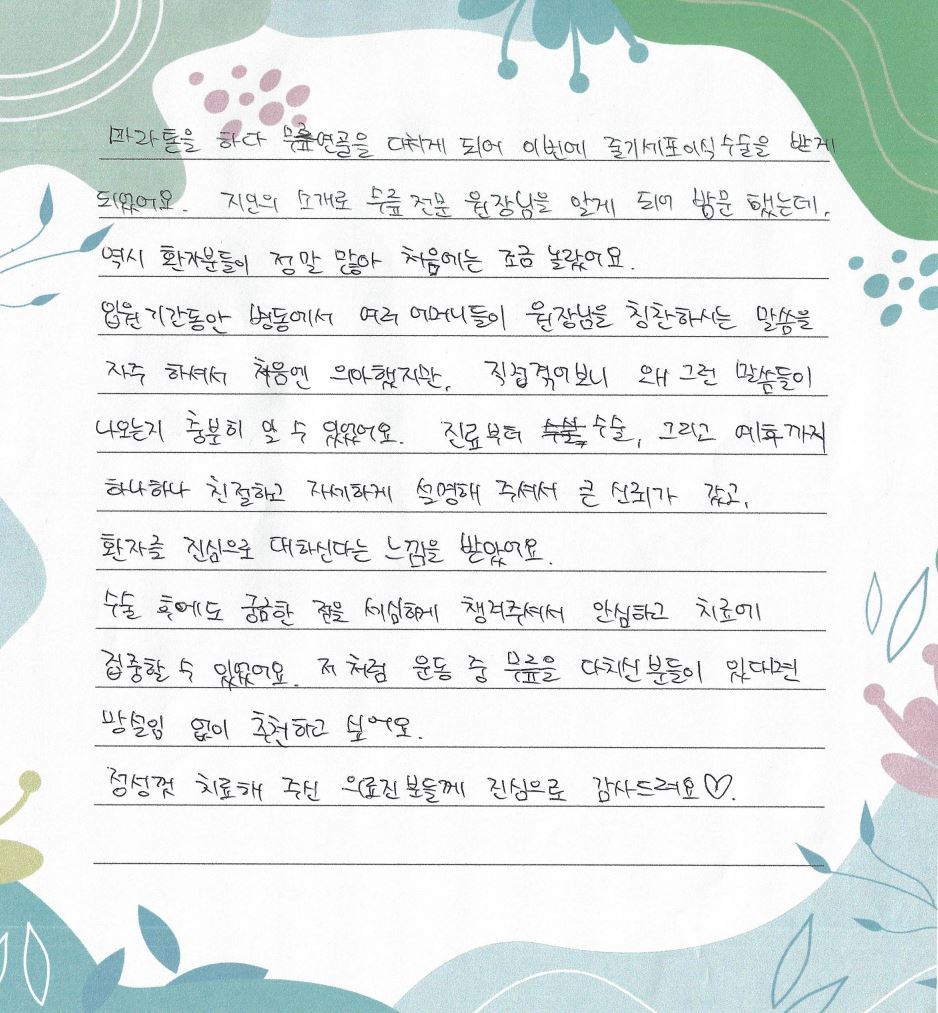 마라톤을 하다 무릎연골을 다치게 되어 이번에 줄기세포이식수술을 받게
되었어요. 지인의 소개로 수릎전문 원장님을 알게 되어 방문했는데,
역시 환자분들이 정말 많아 처음에는 조금 놀랐어요.
입원기간동안 병동에서 여러 어머니들이 원장님을 칭찬하시는 말씀을
자주 하셔서 처음엔 의아했지만, 직접겪어보니 왜 그런 말씀들이
나오는지 충분히 알 수 있었어요. 진료부터 수술, 그리고 예후까지
하나하나 친절하고 자세하게 설명해 주셔서 큰 신뢰가 갔고,
환자를 진심으로 대하신다는 느낌을 받았어요.
수술 후에도 궁금한 점을 세심하게 챙겨주셔서 안심하고 치료에
집중할 수 있었어요. 저처럼 운동 중 무릎을 다치신분들이 있다면
망설임 없이 추천하고 싶어요.
정성껏 치료해 주신 의료진분들께 진심으로 감사드려요♡.